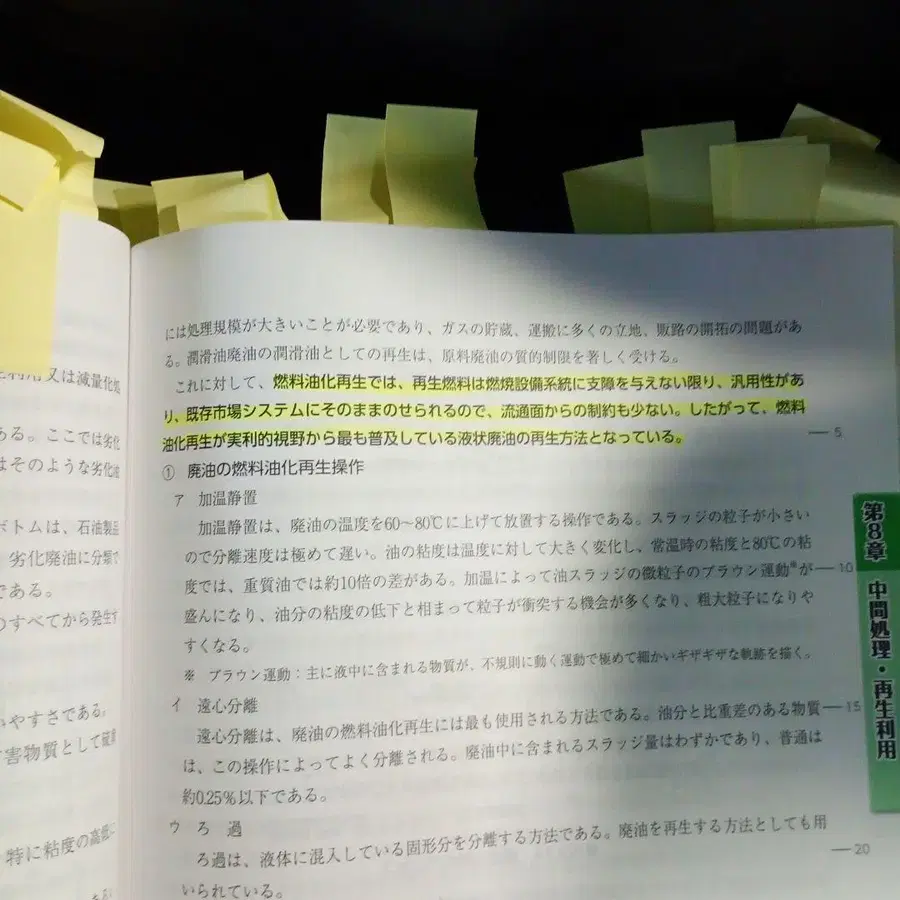 又は減量化処
ある。ここでは劣化
はそのような劣化油
ボトムは、石油製品
劣化廃油に分類で
である。
のすべてから発生す
いやすさである。
害物質として硫黄
特に粘度の高低
には処理規模が大きいことが必要であり、ガスの貯蔵、運搬に多くの立地、販路の開拓の問題があ
る。潤滑油廃油の潤滑油としての再生は、原料廃油の質的制限を著しく受ける。
これに対して、燃料油化再生では、再生燃料は燃焼設備系統に支障を与えない限り、汎用性があ
り、既存市場システムにそのままのせられるので、流通面からの制約も少ない。したがって、燃料
油化再生が実利的視野から最も普及している液状廃油の再生方法となっている。
5
① 廃油の燃料油化再生操作
ア 加温静置
加温静置は、廃油の温度を60〜80℃に上げて放置する操作である。スラッジの粒子が小さい
ので分離速度は極めて遅い。油の粘度は温度に対して大きく変化し、常温時の粘度と80℃の粘
度では、重質油では約10倍の差がある。加温によって油スラッジの微粒子のブラウン運動※が
10
盛んになり、油分の粘度の低下と相まって粒子が衝突する機会が多くなり、粗大粒子になりや
すくなる。
※ ブラウン運動：主に液中に含まれる物質が、不規則に動く運動で極めて細かいギザギザな軌跡を描く。
イ 遠心分離
遠心分離は、廃油の燃料油化再生には最も使用される方法である。油分と比重差のある物質
15
は、この操作によってよく分離される。廃油中に含まれるスラッジ量はわずかであり、普通は
約0.25％以下である。
ウ ろ 過
ろ過は、液体に混入している固形分を分離する方法である。廃油を再生する方法としても用
20
いられている。
第8章 中間処理・再生利用